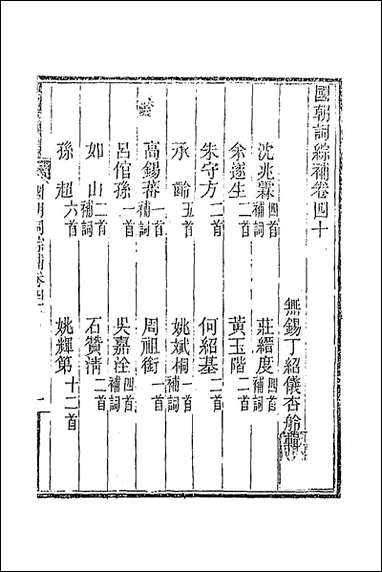 國朝詞綜補卷四十
無錫丁紹儀杏舲輯
沈兆霖四首補詞 莊縉度四首補詞
余遂生二首 黃玉階二首
朱守方二首 何紹基二首
承齡五首 姚斌桐一首補詞
高錫蕃一首補詞 周祖銜一首
呂倌孫一首 吳嘉洤四首補詞
如山二首補詞 石贊清二首
孫超六首 姚輝第十二首
國朝詞綜補卷四十 一